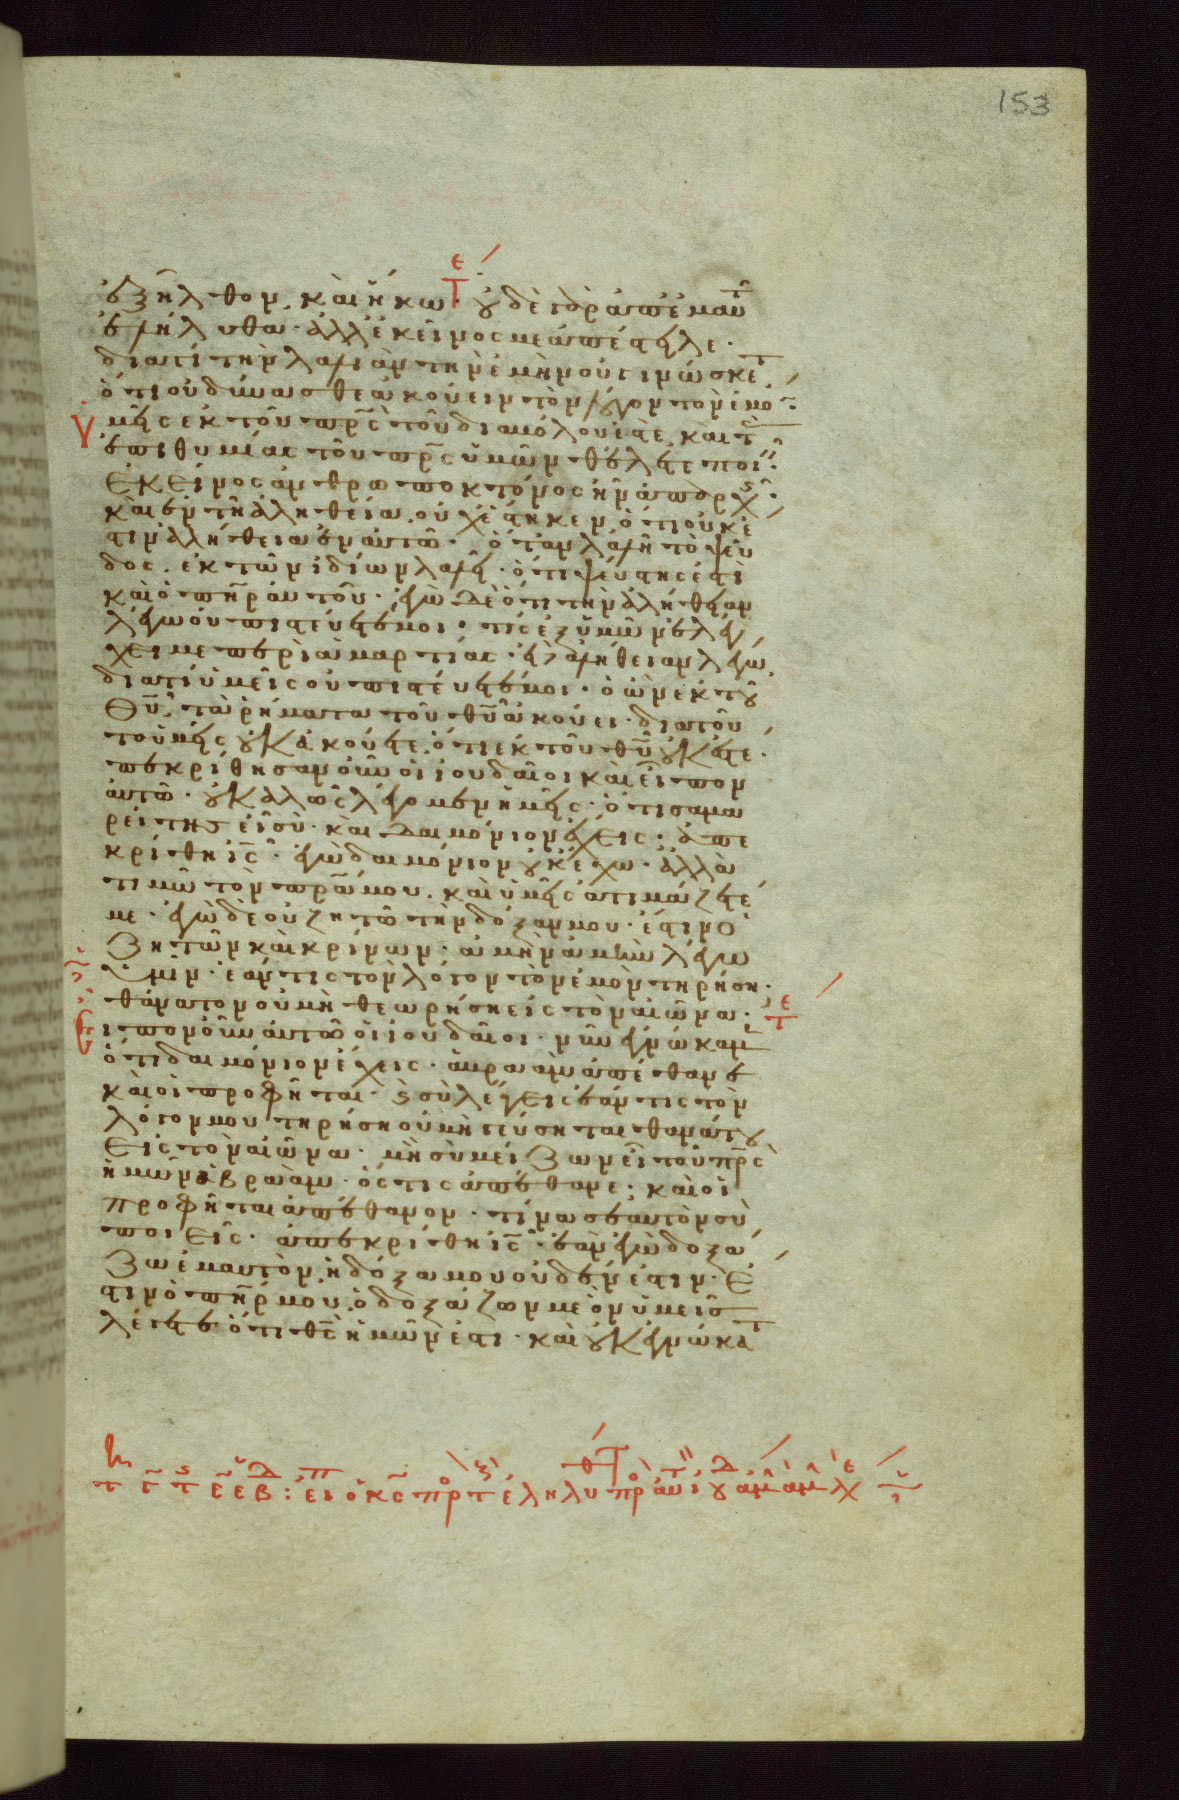 ἐξῆλθον καὶ ἥκω· οὐδὲ γὰρ ἀπ' ἐμαυτ
ἐλήλυθα· ἀλλ' ἐκεῖνος με ἀπέστειλε·
διατί τὴν λαλιὰν τὴν ἐμὴν οὐ γινώσκετ
ὅτι οὐ δύνασθε ἀκούειν τὸν λόγον τὸν ἐμό
ὑμεῖς ἐκ τοῦ πρ̅ς τοῦ διαβόλου ἐστὲ καὶ τ
ἐπιθυμίας τοῦ πρ̅ς ὑμῶν θέλετε ποι
ἐκεῖνος ἀνθρωποκτόνος ἦν ἀπ' ἀρχ
καὶ ἐν τῆ ἀληθεία οὐχ ἕστηκεν ὅτι οὐκ ἔ
στιν ἀλήθεια ἐν αὐτῶ· ὅταν λαλῆ τὸ ψεῦ
δος ἐκ τῶν ἰδίων λαλεῖ· ὅτι ψεύστης ἐστὶ
καὶ ὁ πη̅ρ αὐτοῦ· ἐγὼ δὲ ὅτι τὴν ἀλήθειαν
λέγω οὐ πιστεύετέ μοι· τίς ἐξ ὑμῶν ἐλέγ
χει με περὶ ἁμαρτίας· εἰ ἀλήθειαν λέγω
διατί ὑμεῖς οὐ πιστεύετέ μοι· ὁ ὢν ἐκ τοῦ
θυ̅ τὰ ῥήματα τοῦ θυ̅ ἀκούει· διατοῦ
το ὑμεῖς οὐκ ἀκούετε ὅτι ἐκ τοῦ θυ̅ οὐκ ἐστε·
πεκρίθησαν οὖν οἱ ἰουδαῖοι καὶ εἶπον
αὐτῶ· οὐ καλῶς λέγομεν ἡμεῖς· ὅτι σαμα
ρείτης εἶ σὺ· καὶ δαιμόνιον ἔχεις· ἀπε
κρίθη ις̅· ἐγὼ δαιμόνιον οὐκ ἔχω· ἀλλὰ
τιμῶ τὸν πρ̅α μου· καὶ ὑμεῖς ἀτιμάζετε
με· ἐγὼ δὲ οὐ ζητῶ τὴν δόξαν μου· ἔστιν ὁ
ζητῶν καὶ κρίνων· ἀμὴν ἀμὴν λέγω
ὑμῖν· ἐάν τις τὸν λόγον τὸν ἐμὸν τηρήση·
θάνατον οὐ μὴ θεωρήση εἰς τὸν αἰῶνα·
εἶπον οὖν αὐτῶ οἱ ἰουδαῖοι· νῦν ἐγνώκαμ
ὅτι δαιμόνιον ἔχεις· ἀβραὰμ ἀπέθανε
καὶ οἱ προφῆται· ϗ σὺ λέγεις ἐάν τις τὸν
λόγον μου τηρήση οὐ μὴ γεύσηται θανάτου
εἰς τὸν αἰῶνα· μὴ σὺ μείζων εἶ τοῦ πρ̅ς
ἡμῶν ἀβραὰμ· ὅστις ἀπέθανε· καὶ οἱ
προφῆται ἀπέθανον· τίνα σεαυτὸν σὺ
ποιεῖς· ἀπεκρίθη ις̅· ἐὰν ἐγὼ δοξά
ζω ἐμαυτὸν ἡ δόξα μου οὐδέν ἐστιν· ἔ
στιν ὁ πη̅ρ μου ὁ δοξάζων με ὃν ὑμεῖς
λέγετε ὅτι θς̅ ἡμῶν ἐστι· καὶ οὐκ ἐγνώκατ